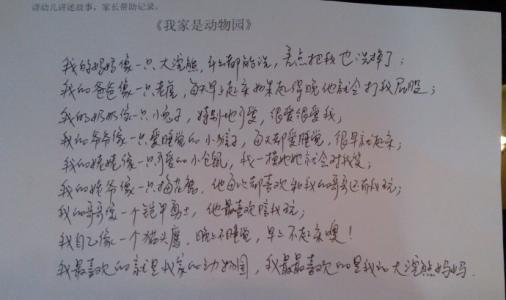 请幼儿讲述故事，家长帮助记录。
《我家是动物园》
我的妈妈像一只大浣熊，什么都能洗，差点把我也洗掉了；
我的爸爸像一只老虎，每天早上起床如果起得晚他就会打我屁股；
我的奶奶像一只小兔子，特别地可爱，很爱很爱我；
我的爷爷像一只爱睡觉的小猪，每天都爱睡觉，很早就起床；
我的姥姥像一只可爱的小仓鼠，我一摸她她就会对我笑；
我的姥爷像一只猫，他每次都喜欢和我的哥哥还有我玩；
我的哥哥像一个铠甲勇士，他最喜欢陪我玩；
我自己像一个猫头鹰，晚上不睡觉，早上不起床噢！
我最喜欢的就是我家的动物园，我最最喜欢的是我的大浣熊妈妈。